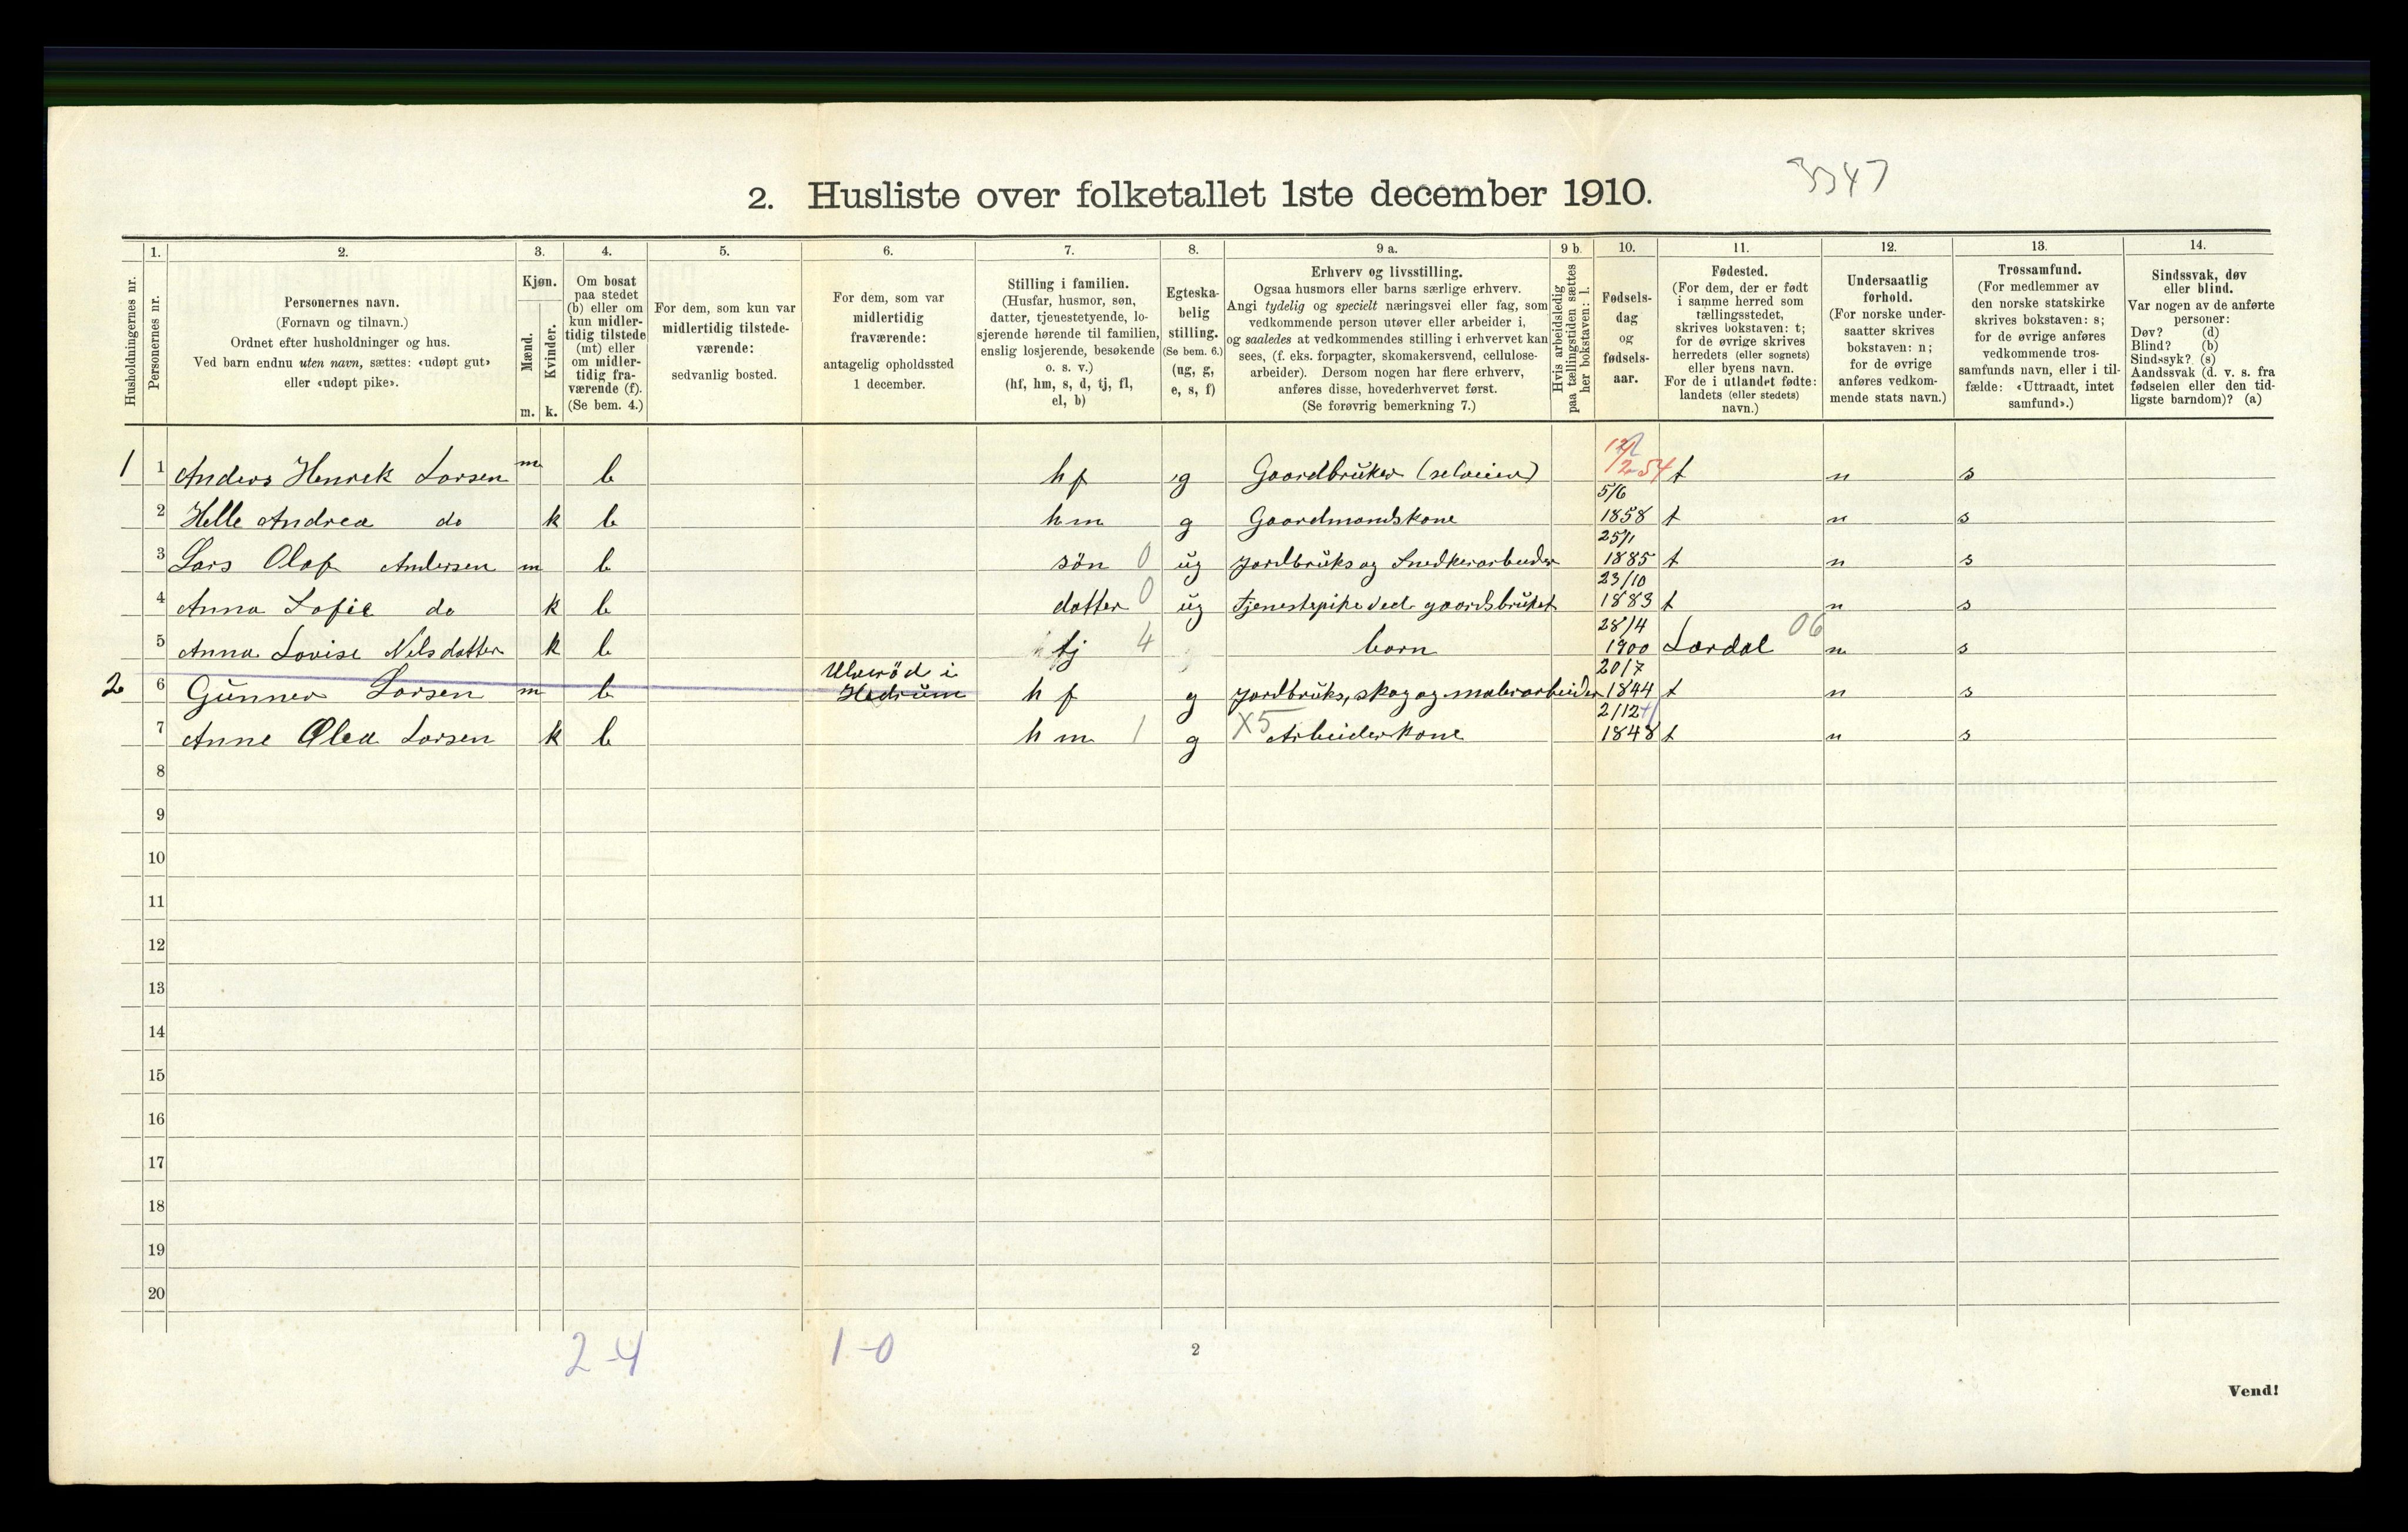 3347
2. Husliste over folketallet 1ste december 1910.
1. 2. 3. 4. 5. 6. 7. 8. 9 a. 9 b. 10. 11. 12. 13. 14.
Husholdningernes nr.
Personernes nr.
Personernes navn.
(Fornavn og tilnavn.)
Ordnet efter husholdninger og hus.
Ved barn endnu uten navn, sættes: «udøpt gut»
eller «udøpt pike».
Kjøn.
Mænd.
Kvinder.
m. k.
Om bosat
paa stedet
(b) eller om
kun midler-
tidig tilstede
(mt) eller
om midler-
tidig fra-
værende (f).
(Se bem. 4.)
For dem, som kun var
midlertidig tilstede-
værende:
sedvanlig bosted.
For dem, som var
midlertidig
fraværende:
antagelig opholdssted
1 december.
Stilling i familien.
(Husfar, husmor, søn,
datter, tjenestetyende, lo-
sjerende hørende til familien,
enslig losjerende, besøkende
o. s. v.)
(hf, hm, s, d, tj, fl,
el, b)
Egteska-
belig
stilling.
(Se bem. 6.)
(ug, g,
e, s, f)
Erhverv og livsstilling.
Ogsaa husmors eller barns særlige erhverv.
Angi tydelig og specielt næringsvei eller fag, som
vedkommende person utøver eller arbeider i,
og saaledes at vedkommendes stilling i erhvervet kan
sees, (f. eks. forpagter, skomakersvend, cellulose-
arbeider). Dersom nogen har flere erhverv,
anføres disse, hovederhvervet først.
(Se forøvrig bemerkning 7.)
Hvis arbeidsledig
paa tællingstiden sættes
her bokstaven: l.
Fødsels-
dag
og
fødsels-
aar.
Fødested.
(For dem, der er født
i samme herred som
tællingsstedet,
skrives bokstaven: t;
for de øvrige skrives
herredets (eller sognets)
eller byens navn.
For de i utlandet fødte:
landets (eller stedets)
navn.)
Undersaatlig
forhold.
(For norske under-
saatter skrives
bokstaven: n;
for de øvrige
anføres vedkom-
mende stats navn.)
Trossamfund.
(For medlemmer av
den norske statskirke
skrives bokstaven: s;
for de øvrige anføres
vedkommende tros-
samfunds navn, eller i til-
fælde: «Uttraadt, intet
samfund».)
Sindssvak, døv
eller blind.
Var nogen av de anførte
personer:
Døv? (d)
Blind? (b)
Sindssyk? (s)
Aandssvak (d. v. s. fra
fødselen eller den tid-
ligste barndom)? (a)
1 1 Anders Henrek Larsen m b hf g Gaardbruker (selveier) 12/2 54 t n s
2 Helle Andrea do k b hm g Gaardmandskone 5/6 1858 t n s
3 Lars Olaf Andersen m b søn 0 ug Jordbruks og Snedkerarbeider 25/1 1885 t n s
4 Anna Sofie do k b datter 0 ug Tjenestepike ved gaardsbruket 23/10 1883 t n s
5 Anna Lovise Nilsdatter k b tj 4 barn 28/4 1900 Lardal 06 n s
2 6 Gunner Larsen m b Ulverød i Hedrum hf g Jordbruks, skog og malerarbeider 20/7 1844 t n s
7 Anne Olea Larsen k b hm 1 g X5 Arbeiderkone 2/12 1848 t n s
8
9
10
11
12
13
14
15
16
17
18
19
20
2-4 1-0
2
Vend!